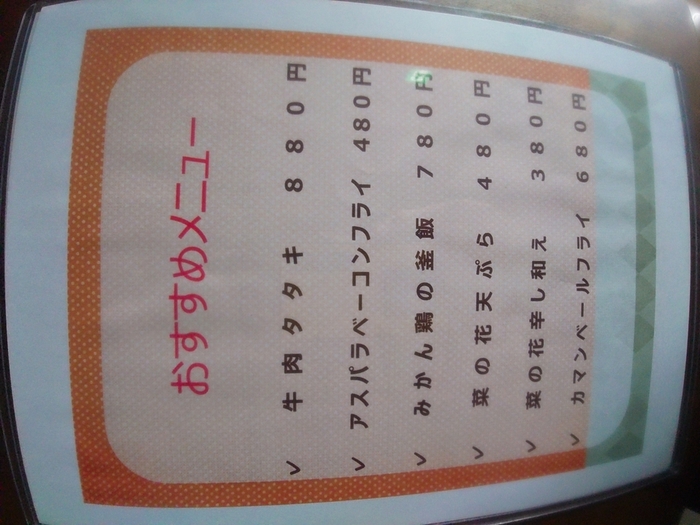 おすすめメニュー
✓ 牛肉タタキ 880円
✓ アスパラベーコンフライ 480円
✓ みかん鶏の釜飯 780円
✓ 菜の花天ぷら 480円
✓ 菜の花辛し和え 380円
✓ カマンベールフライ 680円